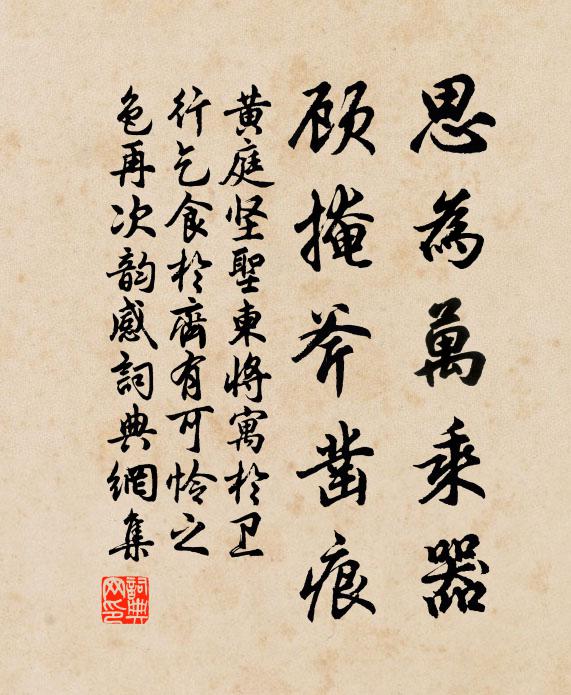 思為萬乘器
顾掩斧凿痕
黄庭坚聖東将寓於卫
行乞食於齊有可怜之
色再次韵感詞典網集
詞典网印